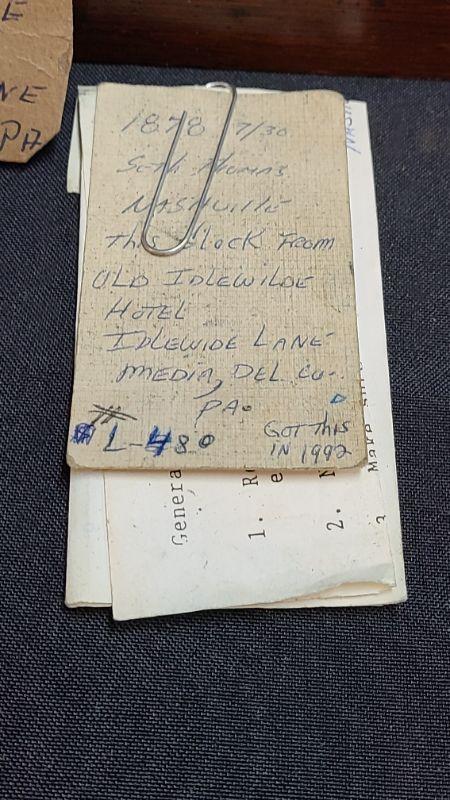 E
NE
PA
1878 7/30
Seth Thomas
NASHVILLE
this CLOCK FROM
OLD IDLEWILDE
HOTEL
IDLEWIDE LANE
MEDIA, DEL CO.
PA.
# L-480
GOT THIS
IN 1992
Genera
1. R
2.
Make sure